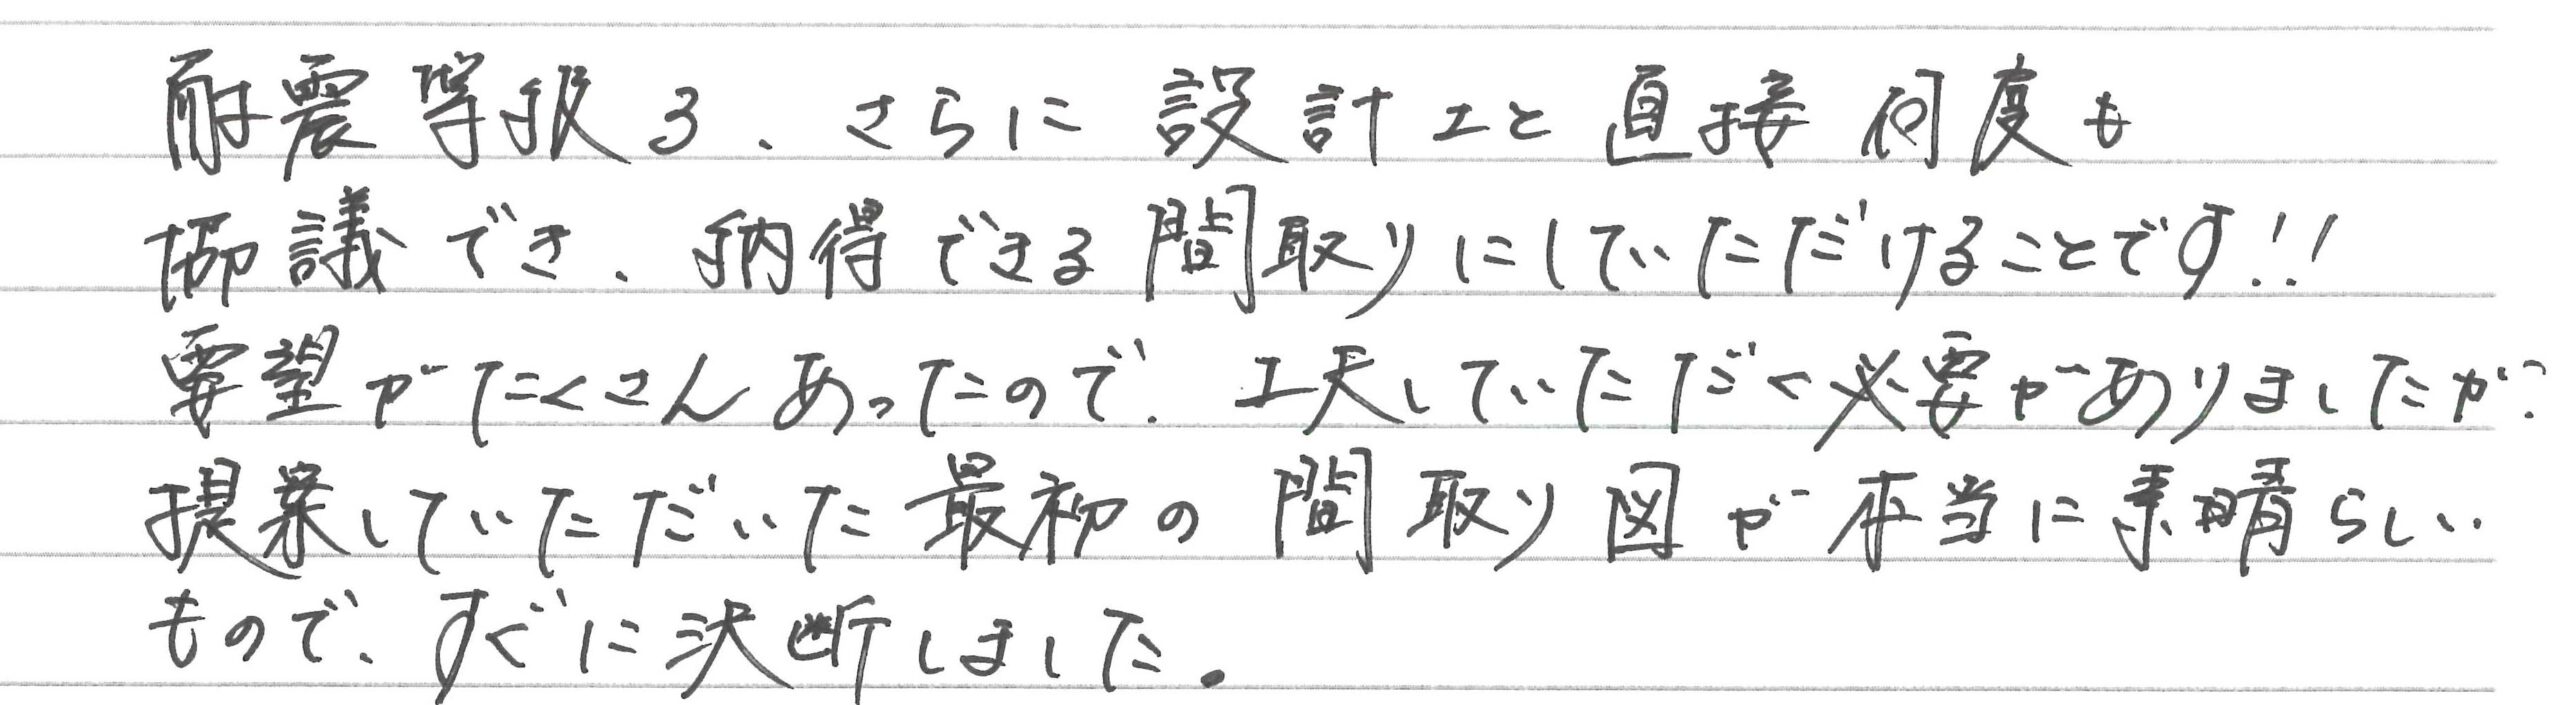 耐震等級3、さらに設計士と直接何度も
協議でき、納得できる間取りにしていただけることです!!
要望がたくさんあったので、工夫していただく必要がありましたが、
提案していただいた最初の間取り図が本当に素晴らしい
もので、すぐに決断しました。